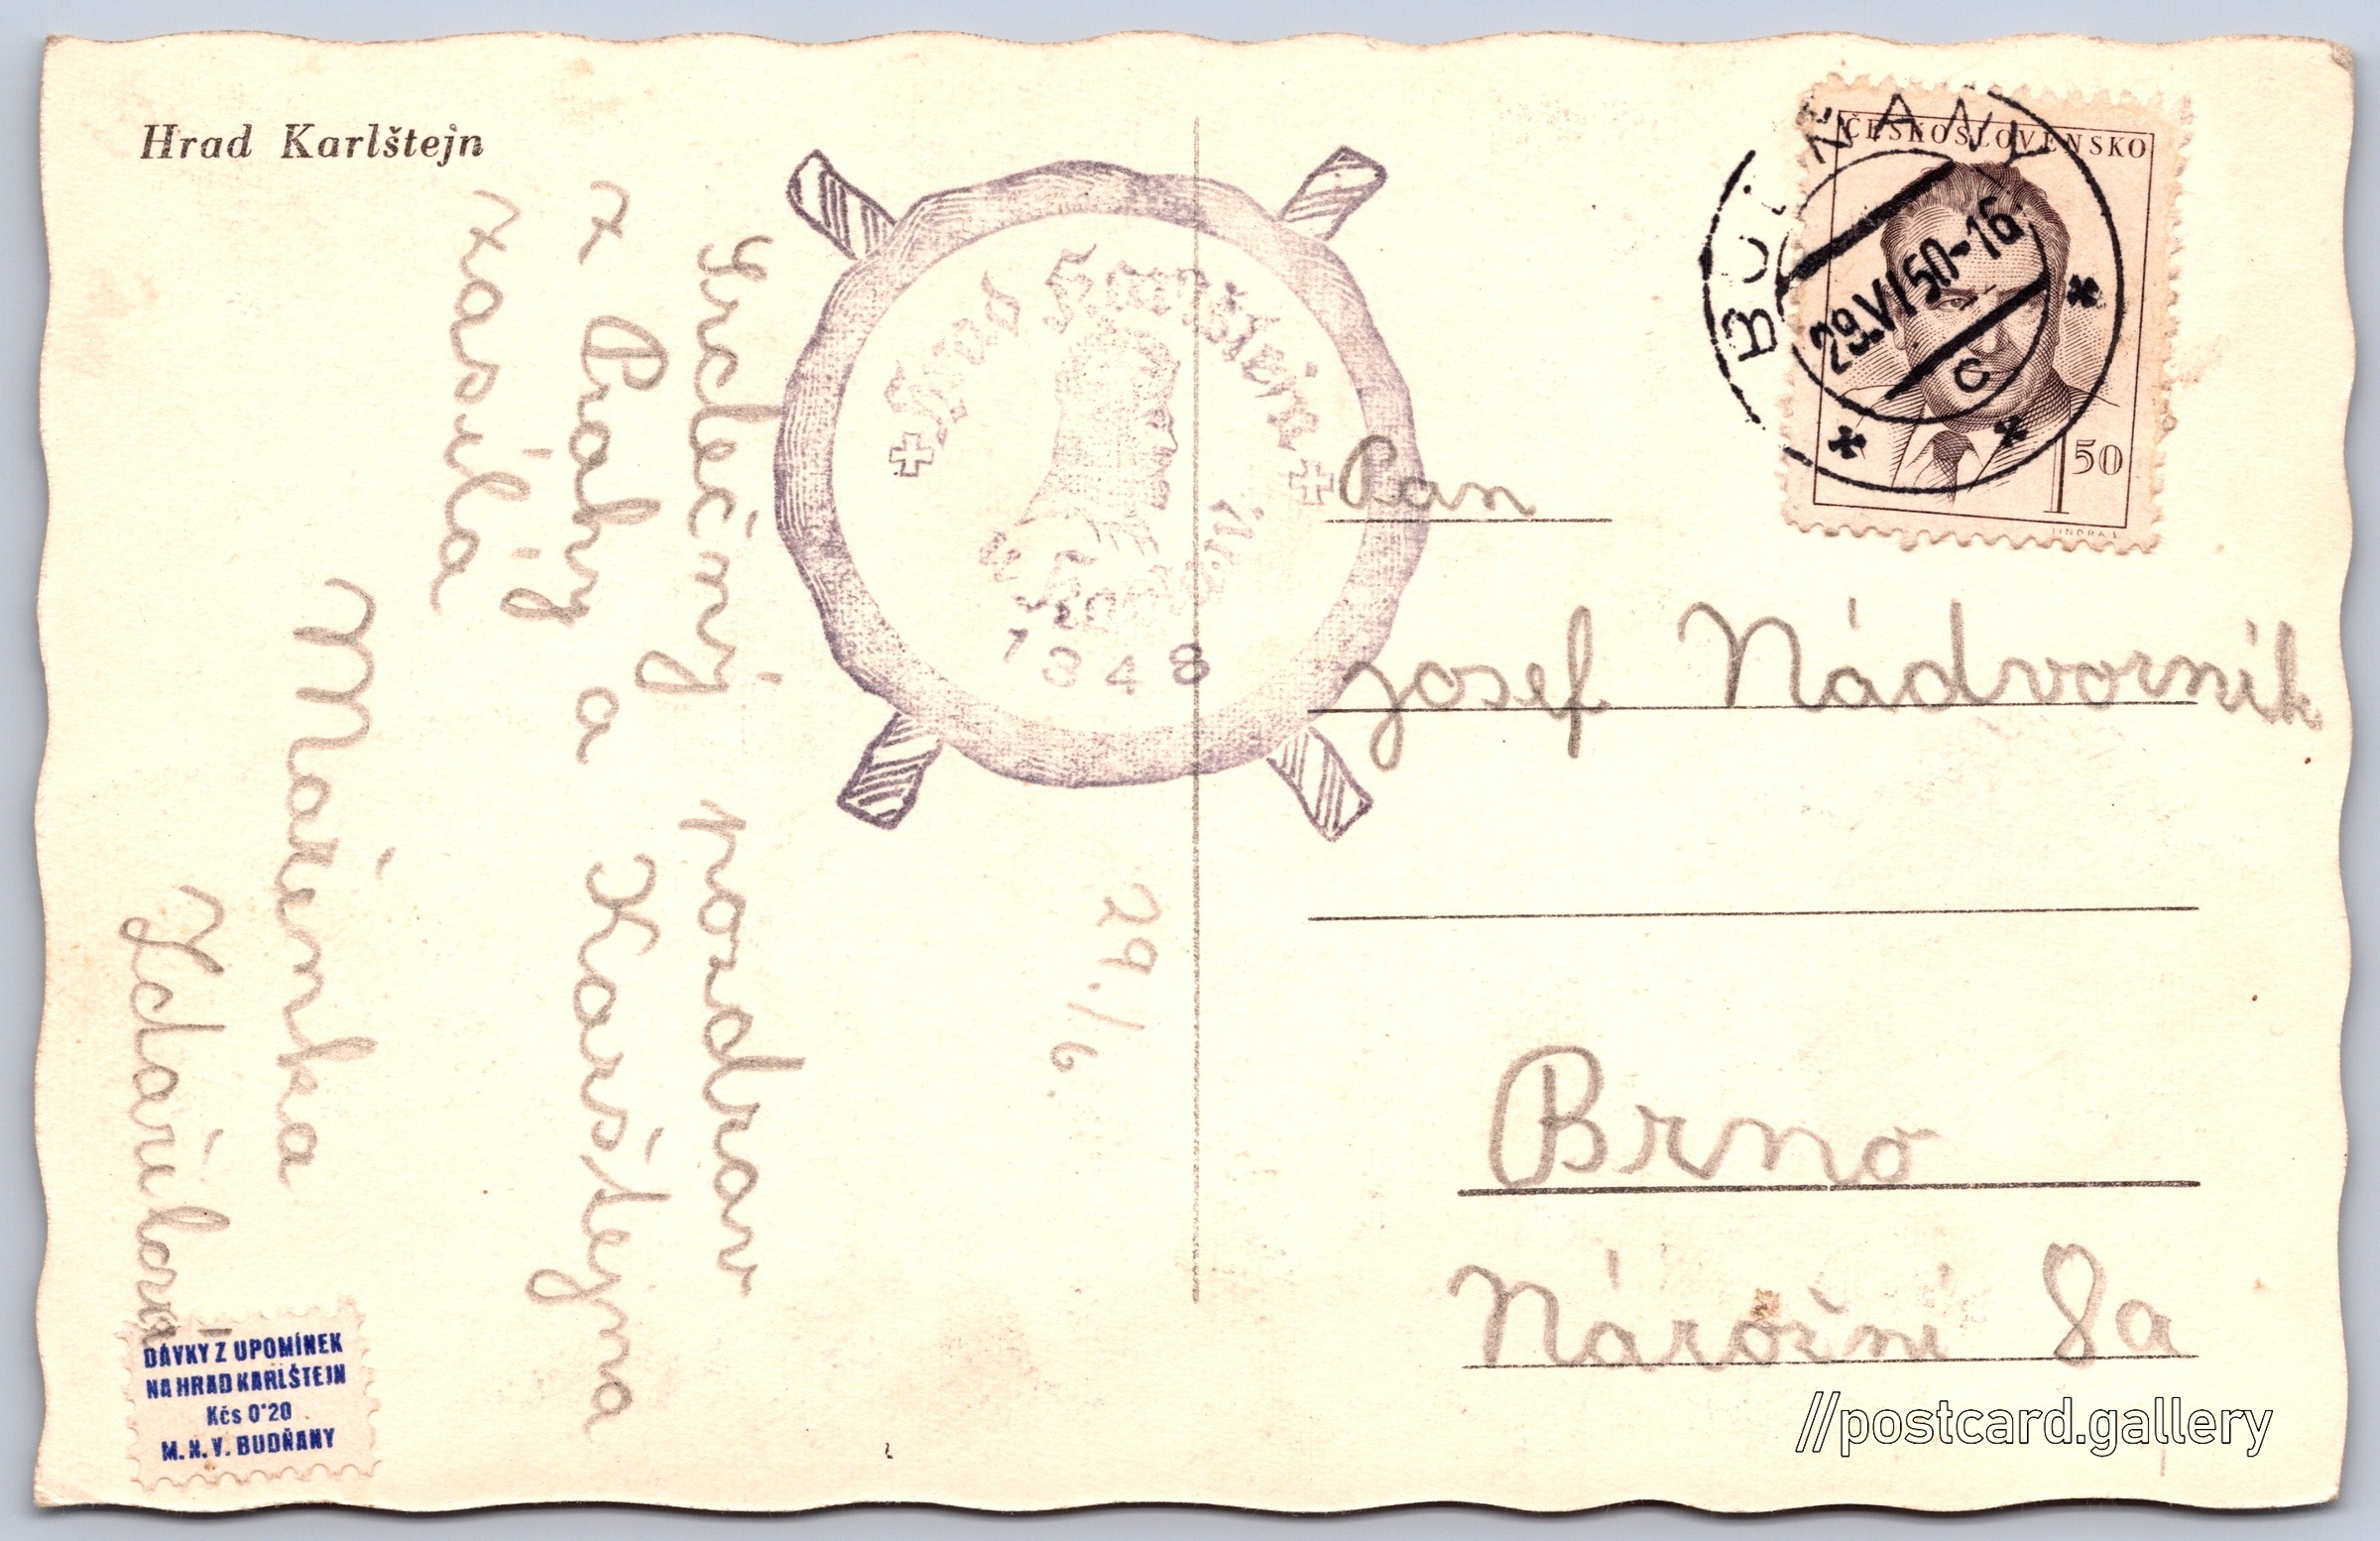 Hrad Karlštejn
Srdečný pozdrav
z Prahy a Karlštejna
zasílá
Mařenka
Zdařilova
29./6.
Hrad Karlštejn
1348
ČESKOSLOVENSKO
1 50
JINDRA S.
BUDŇANY
29.VI 50-16
C
Pan
Josef Nádvorník
Brno
Nárožní 8a
DÁVKY Z UPOMÍNEK
NA HRAD KARLŠTEJN
Kčs 0·20
M. N. V. BUDŇANY
//postcard.gallery